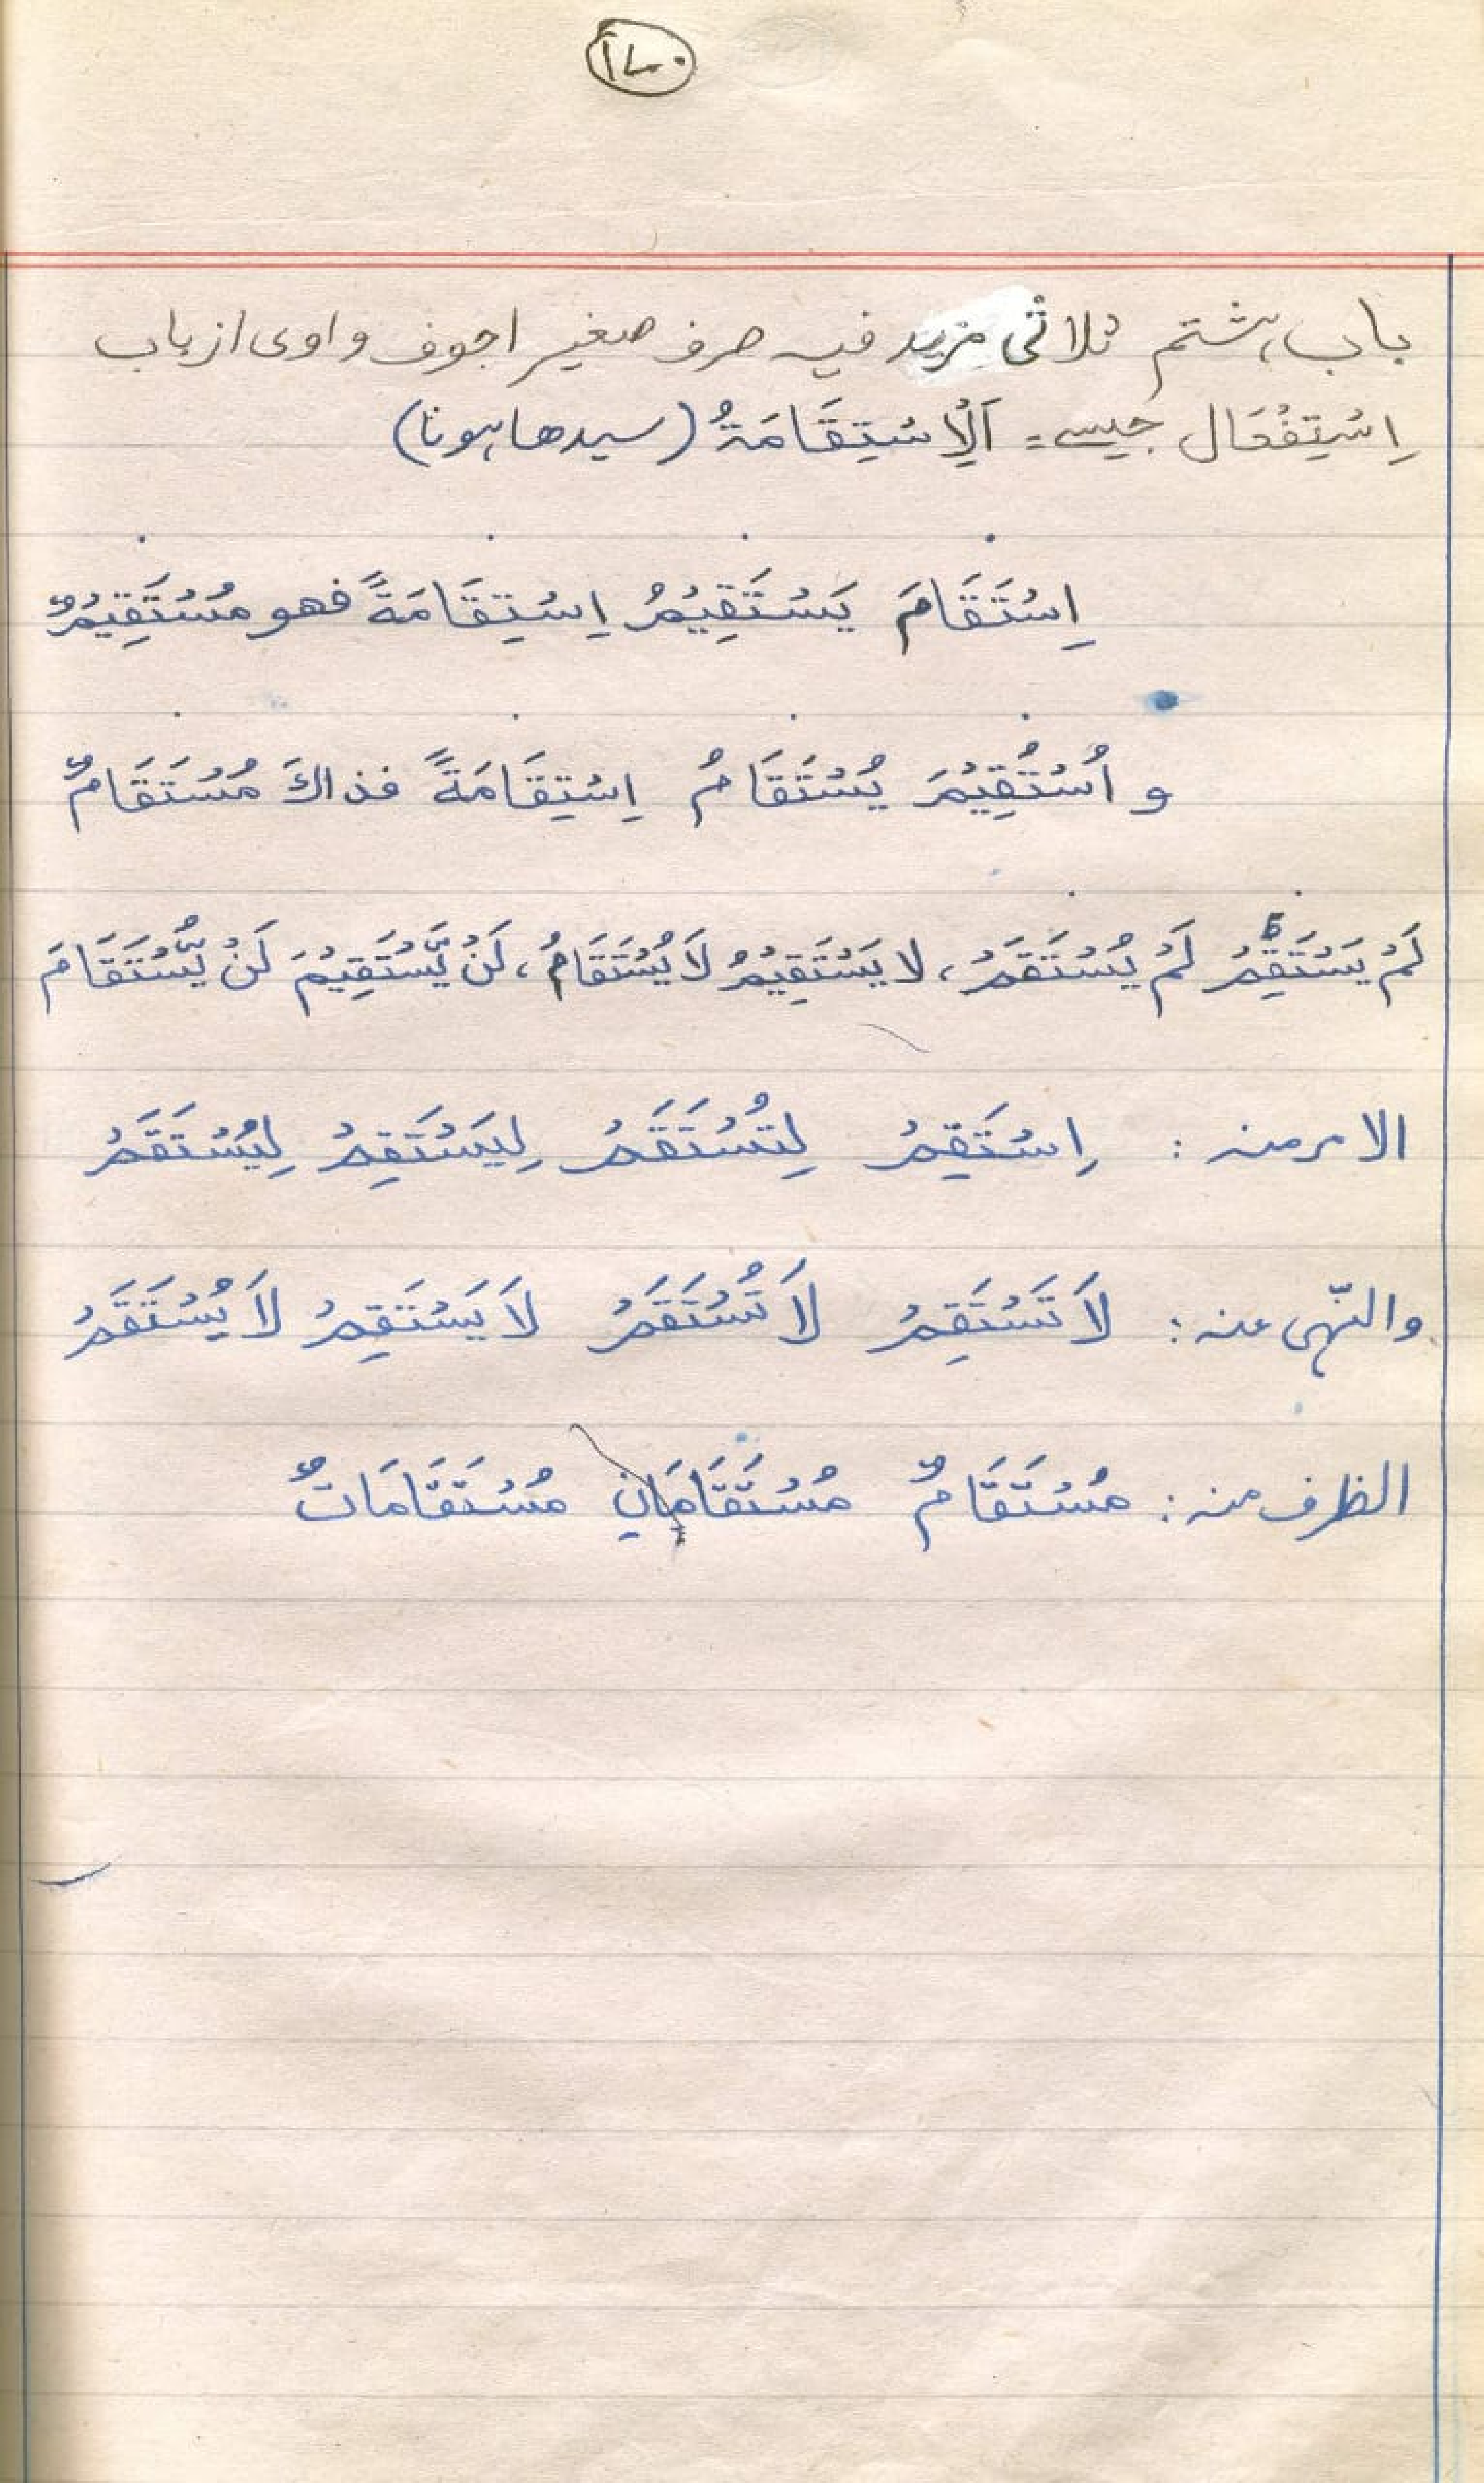 ۱۷۰
باب ہشتم ثلاثی مزید فیہ صرف صغیر اجوف واوی از باب
اِسْتِفْعَال جیسے = اَلْاِسْتِقَامَةُ (سیدھا ہونا)
اِسْتَقَامَ يَسْتَقِيْمُ اِسْتِقَامَةً فهو مُسْتَقِيْمٌ
و اُسْتُقِيْمَ يُسْتَقَامُ اِسْتِقَامَةً فذاكَ مُسْتَقَامٌ
لَمْ يَسْتَقِمْ لَمْ يُسْتَقَمْ، لا يَسْتَقِيْمُ لَا يُسْتَقَامُ، لَنْ يَّسْتَقِيْمَ لَنْ يُّسْتَقَامَ
الامر منه : اِسْتَقِمْ لِتُسْتَقَمْ لِيَسْتَقِمْ لِيُسْتَقَمْ
والنّهی عنه : لَا تَسْتَقِمْ لَا تُسْتَقَمْ لَا يَسْتَقِمْ لَا يُسْتَقَمْ
الظرف منه : مُسْتَقَامٌ مُسْتَقَامَانِ مُسْتَقَامَاتٌ